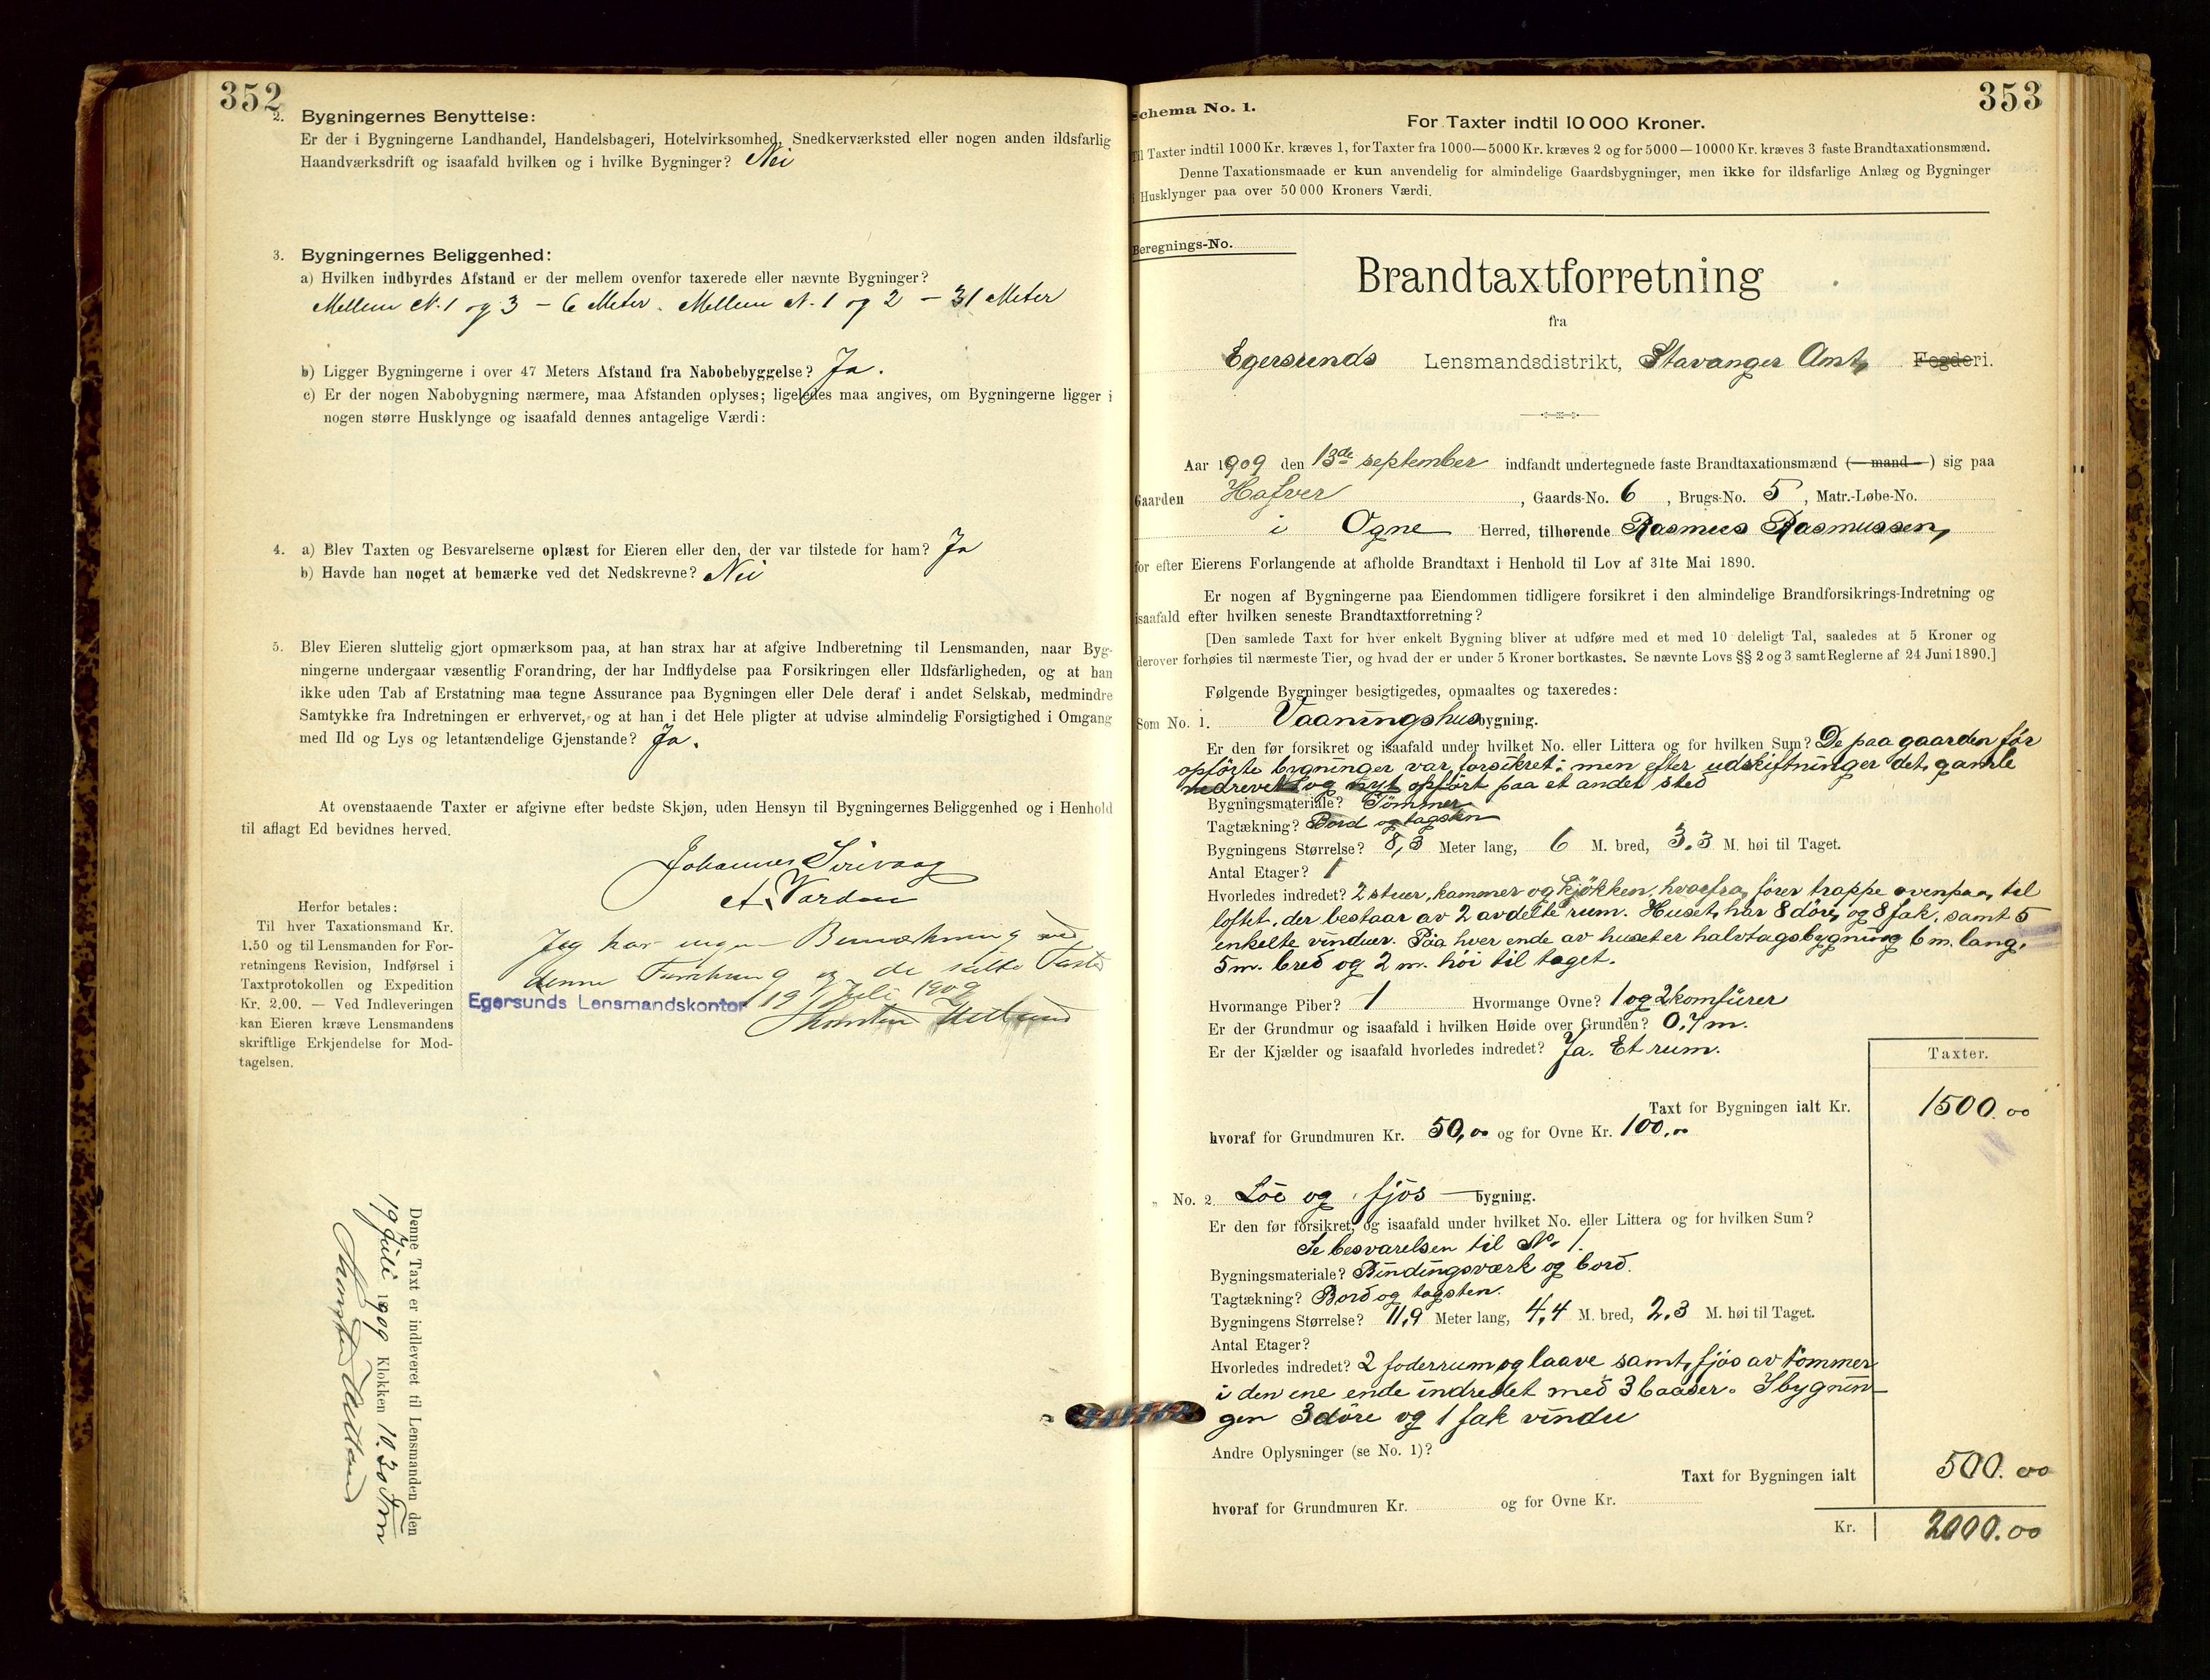 352
2. Bygningernes Benyttelse:
Er der i Bygningerne Landhandel, Handelsbageri, Hotelvirksomhed, Snedkerværksted eller nogen anden ildsfarlig
Haandværksdrift og isaafald hvilken og i hvilke Bygninger? Nei
3. Bygningernes Beliggenhed:
a) Hvilken indbyrdes Afstand er der mellem ovenfor taxerede eller nævnte Bygninger?
Mellem N. 1 og 3 – 6 Meter. Mellem N. 1 og 2 – 31 Meter
b) Ligger Bygningerne i over 47 Meters Afstand fra Nabobebyggelse? Ja.
c) Er der nogen Nabobygning nærmere, maa Afstanden oplyses; ligeledes maa angives, om Bygningerne ligger i
nogen større Husklynge og isaafald dennes antagelige Værdi:
4. a) Blev Taxten og Besvarelserne oplæst for Eieren eller den, der var tilstede for ham? Ja
b) Havde han noget at bemærke ved det Nedskrevne? Nei
5. Blev Eieren sluttelig gjort opmærksom paa, at han strax har at afgive Indberetning til Lensmanden, naar Byg-
ningerne undergaar væsentlig Forandring, der har Indflydelse paa Forsikringen eller Ildsfarligheden, og at han
ikke uden Tab af Erstatning maa tegne Assurance paa Bygningen eller Dele deraf i andet Selskab, medmindre
Samtykke fra Indretningen er erhvervet, og at han i det Hele pligter at udvise almindelig Forsigtighed i Omgang
med Ild og Lys og letantændelige Gjenstande? Ja.
At ovenstaaende Taxter er afgivne efter bedste Skjøn, uden Hensyn til Bygningernes Beliggenhed og i Henhold
til aflagt Ed bevidnes herved.
Johannes Sirevaag
A. Varden
Herfor betales:
Til hver Taxationsmand Kr.
1.50 og til Lensmanden for For-
retningens Revision, Indførsel i
Taxtprotokollen og Expedition
Kr. 2.00. — Ved Indleveringen
kan Eieren kræve Lensmandens
skriftlige Erkjendelse for Mod-
tagelsen.
Jeg har ingen Bemærkning ved
denne Forretning og de satte Taxter
Egersunds Lensmandskontor 19 Juli 1909
Denne Taxt er indleveret til Lensmanden den
19 Juli 1909 Klokken 10.30 Fm
353
Schema No. 1.
For Taxter indtil 10 000 Kroner.
Til Taxter indtil 1000 Kr. kræves 1, for Taxter fra 1000—5000 Kr. kræves 2 og for 5000—10000 Kr. kræves 3 faste Brandtaxationsmænd.
Denne Taxationsmaade er kun anvendelig for almindelige Gaardsbygninger, men ikke for ildsfarlige Anlæg og Bygninger
i Husklynger paa over 50 000 Kroners Værdi.
Beregnings-No.
Brandtaxtforretning
fra
Egersunds Lensmandsdistrikt, Stavanger Amt, Fogderi.
Aar 1909 den 13de september indfandt undertegnede faste Brandtaxationsmænd (— mand —) sig paa
Gaarden Hafver , Gaards-No. 6 , Brugs-No. 5 , Matr.-Løbe-No.
i Ogne Herred, tilhørende Rasmus Rasmussen,
for efter Eierens Forlangende at afholde Brandtaxt i Henhold til Lov af 31te Mai 1890.
Er nogen af Bygningerne paa Eiendommen tidligere forsikret i den almindelige Brandforsikrings-Indretning og
isaafald efter hvilken seneste Brandtaxtforretning?
[Den samlede Taxt for hver enkelt Bygning bliver at udføre med et med 10 deleligt Tal, saaledes at 5 Kroner og
derover forhøies til nærmeste Tier, og hvad der er under 5 Kroner bortkastes. Se nævnte Lovs §§ 2 og 3 samt Reglerne af 24 Juni 1890.]
Følgende Bygninger besigtigedes, opmaaltes og taxeredes:
Som No. 1. Vaaningshusbygning.
Er den før forsikret og isaafald under hvilket No. eller Littera og for hvilken Sum? De paa gaarden før
opførte bygninger var forsikret; men efter udskiftninger det gamle
nedrevet og nyt opført paa et andet sted
Bygningsmateriale? Tømmer
Tagtækning? Bord og tagsten
Bygningens Størrelse? 8,3 Meter lang, 6 M. bred, 3.3 M. høi til Taget.
Antal Etager? 1
Hvorledes indredet? 2 stuer, kammer og kjøkken, hvorfra fører trappe ovenpaa til
loftet, der bestaar av 2 avdelte rum. Huset har 8 døre og 8 fak, samt 5
enkelte vinduer. Paa hver ende av huset er halvtagsbygning 6 m. lang,
5 m. bred og 2 m. høi til taget.
Hvormange Piber? 1 Hvormange Ovne? 1 og 2 komfürer
Er der Grundmur og isaafald i hvilken Høide over Grunden? 0,7 m.
Er der Kjælder og isaafald hvorledes indredet? Ja. Et rum.
Taxter.
Taxt for Bygningen ialt Kr. 1500.00
hvoraf for Grundmuren Kr. 50,00 og for Ovne Kr. 100,00
„ No. 2 Löe og fjös — bygning.
Er den før forsikret, og isaafald under hvilket No. eller Littera og for hvilken Sum?
Se besvarelsen til No. 1.
Bygningsmateriale? Bindingsværk og bord.
Tagtækning? Bord og tagsten.
Bygningens Størrelse? 11,9 Meter lang, 4,4 M. bred, 2,3 M. høi til Taget.
Antal Etager?
Hvorledes indredet? 2 foderrum og laave samt fjös av tømmer
i den ene ende indredet med 3 baaser. I bygnin-
gen 3 döre og 1 fak vindu
Andre Oplysninger (se No. 1)?
Taxt for Bygningen ialt 500.00
hvoraf for Grundmuren Kr. og for Ovne Kr.
Kr. 2000.00